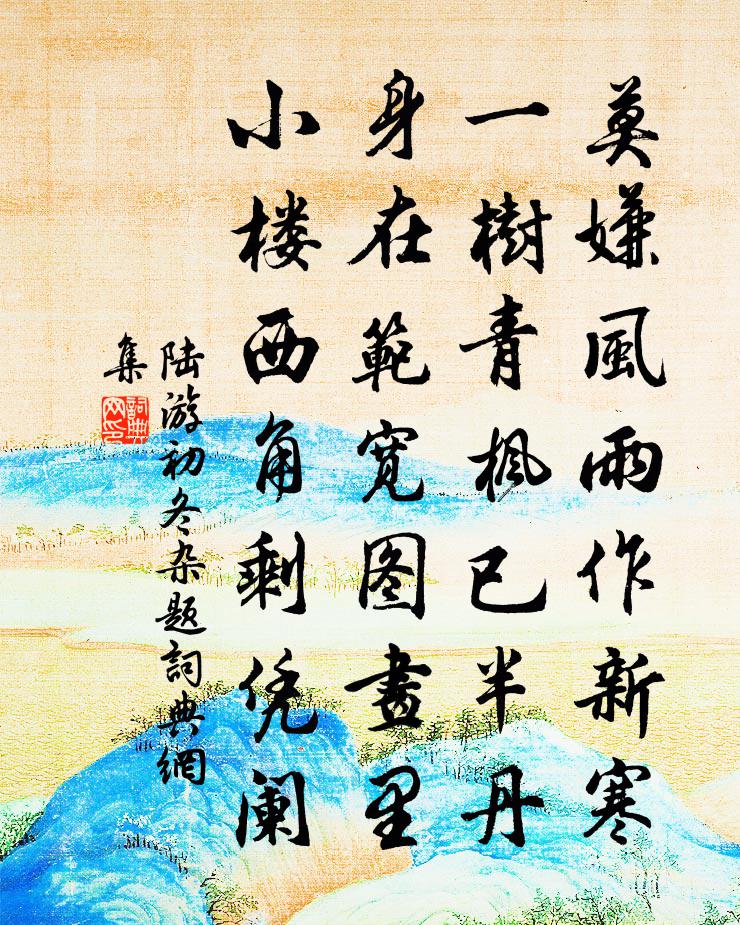 莫嫌風雨作新寒
一樹青楓已半丹
身在範宽图畫里
小楼西角剩凭阑
陆游初冬杂题詞典網
集
詞典
网印